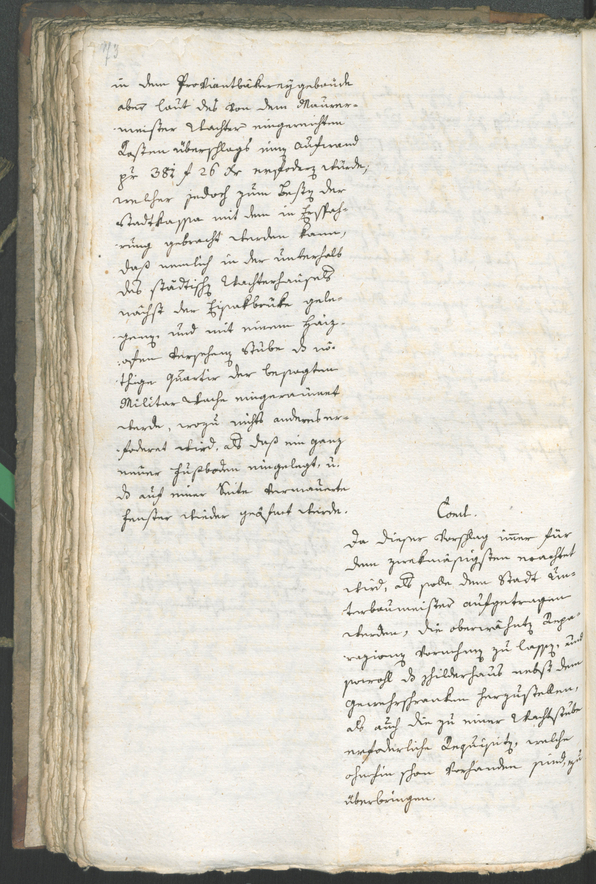 73
in dem Proviantbäkereygebäude
aber laut des von dem Maurer-
meister Wachter eingereichten
Kosten überschlags einen Aufwand
pr 381 f 26 Xr erfodern würde,
welcher jedoch zum Besten der
Stadtkassa mit dem in Erspah-
rung gebracht werden kann,
daß nemlich in der unterhalb
des städtischen Wachterhauses
nächst der Eisakbrüke gele-
genen und mit einem Haiz-
ofen versehenen Stube das nö-
thige Quartir der besagten
Militar Wache eingeraumet
werde, wozu nichts anderes er-
foderet wird, als daß ein ganz
neuer Fußboden eingelegt, u.
das auf einer Seite vermauerte
Fenster wieder geöfnet würde.
Concl.
Da dieser Vorschlag immer für
den zwekmäsigsten erachtet
wird, als solle dem Stadt Un-
terbaumeister aufgetragen
werden, die oberwähnten Repa-
razionen vornehmen zu lassen, und
sowohl das Schilderhaus nebst dem
Gewehrschranken herzustellen,
als auch die zu einer Wachtstube
erfoderliche Requisiten, welche
ohnehin schon vorhanden sind, zu
überbringen.